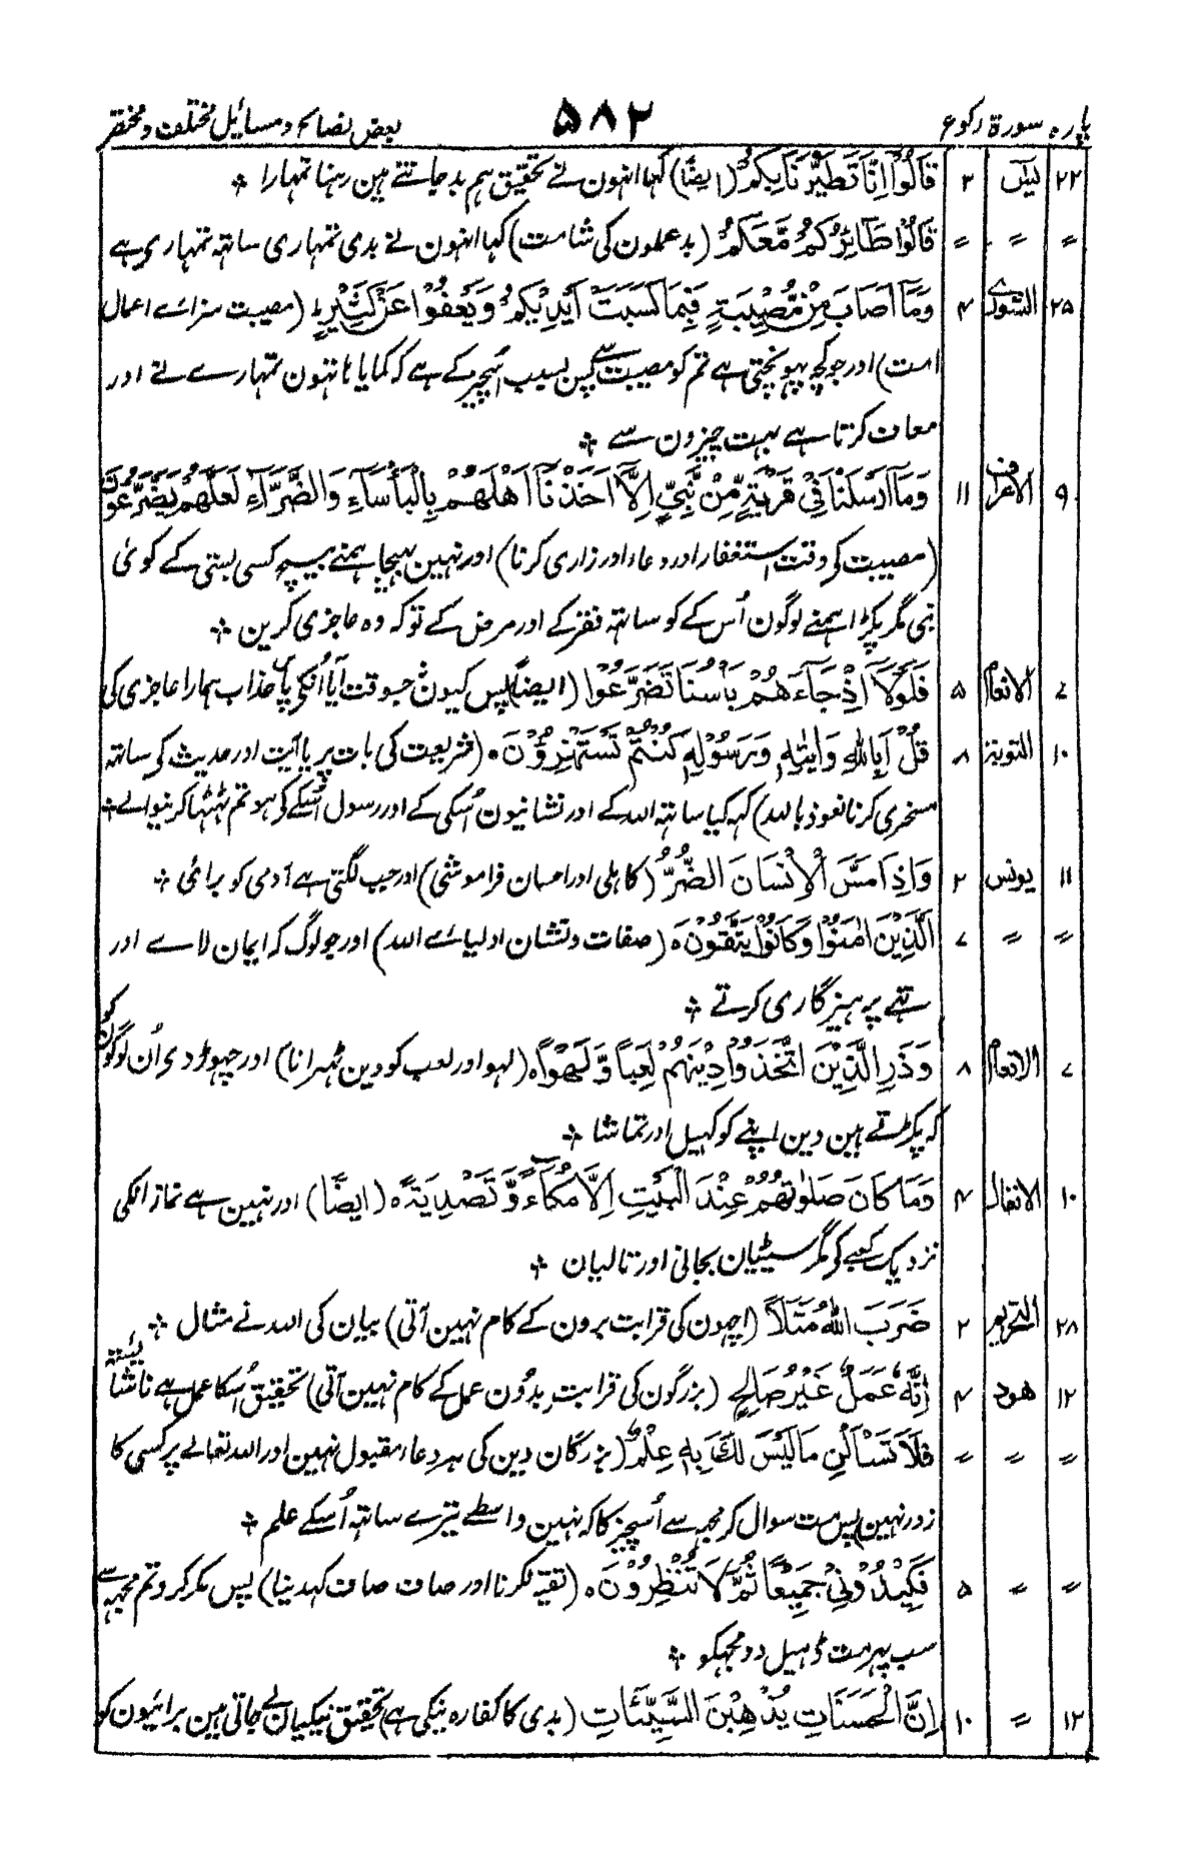 پارہ سورۃ رکوع ۵۸۲ بعض نصائح و مسائیل مختلف و مختصر
۲۲ یٰسٓ ۲ قَالُوْٓا اِنَّا تَطَیَّرْنَا بِکُمْ (ایضًا) کہا انہون نے تحقیق ہم بد جانتے ہین رہنا تمہارا ÷
〃 〃 〃 قَالُوْا طَآئِرُکُمْ مَّعَکُمْ (بد عملون کی شامت) کہا انہون نے بدی تمہاری ساتہہ تمہاری ہے
۲۵ الشورٰے ۴ وَمَآ اَصَابَ مِنْ مُّصِیْبَۃٍ فَبِمَا کَسَبَتْ اَیْدِیْکُمْ وَیَعْفُوْا عَنْ کَثِیْرٍ (مصیبت سزائے اعمال
است) اور جو کچہہ پہونچتی ہے تم کو مصیبت سے پس بسبب اُسچیز کے ہے کہ کمایا ہاتہون تمہارے نے اور
معاف کرتا ہے بہت چیزون سے ÷
۹ الاعراف ۱۱ وَمَآ اَرْسَلْنَا فِیْ قَرْیَۃٍ مِّنْ نَّبِیٍّ اِلَّآ اَخَذْنَآ اَھْلَھَا بِالْبَاْسَآءِ وَالضَّرَّآءِ لَعَلَّھُمْ یَضَّرَّعُوْنَ
(مصیبت کے وقت استغفار اور دعاء اور زاری کرنا) اور نہین بہیجا ہمنے بیچ کسی بستی کے کوئی
نبی مگر پکڑا ہمنے لوگون اُس کے کو ساتہہ فقر کے اور مرض کے تو کہ وہ عاجزی کرین ÷
۷ الانعام ۵ فَلَوْلَآ اِذْ جَآءَھُمْ بَاْسُنَا تَضَرَّعُوْا (ایضًا) پس کیون نہ جسوقت آیا اُنکے پاس عذاب ہمارا عاجزی کی
۱۰ التوبۃ ۸ قُلْ اَبِاللہِ وَاٰیٰتِہٖ وَرَسُوْلِہٖ کُنْتُمْ تَسْتَھْزِءُوْنَ ۰ (شریعت کی بات پر یا آیت اور حدیث کے ساتہہ
مسخری کرنا نعوذ باللہ) کہہ کیا ساتہہ اللہ کے اور نشانیون اُسکی کے اور رسول اُسکے کے ہو تم ٹہٹہا کرنیوالے ÷
۱۱ یونس ۲ وَاِذَا مَسَّ الْاِنْسَانَ الضُّرُّ (کاہلی اور احسان فراموشی) اور جب لگتی ہے آدمی کو برائی ÷
〃 〃 ۷ اَلَّذِیْنَ اٰمَنُوْا وَکَانُوْا یَتَّقُوْنَ ہ (صفات و نشان اولیائے اللہ) اور جو لوگ کہ ایمان لائے اور
تہے پرہیزگاری کرتے ÷
۷ الانعام ۸ وَذَرِ الَّذِیْنَ اتَّخَذُوْا دِیْنَھُمْ لَعِبًا وَّلَھْوًا ہ (لہو اور لعب کو دین ٹہرانا) اور چہوڑ دی اُن لوگون کو
کہ پکڑتے ہین دین اپنے کو کہیل اور تماشا ÷
۱۰ الانفال ۴ وَمَا کَانَ صَلَوٰتُھُمْ عِنْدَ الْبَیْتِ اِلَّا مُکَآءً وَّتَصْدِیَۃً ہ (ایضًا) اور نہین ہے نماز انکی
نزدیک کعبے کے مگر سیٹیان بجانی اور تالیان ÷
۲۸ التحریم ۲ ضَرَبَ اللہُ مَثَلًا (اچہون کی قرابت برون کے کام نہین آتی) بیان کی اللہ نے مثال ÷
۱۲ ھود ۴ اِنَّہٗ عَمَلٌ غَیْرُ صَالِحٍ (بزرگون کی قرابت بدون عمل کے کام نہین آتی) تحقیق اُسکا عمل ہے ناشائستہ
〃 〃 〃 فَلَا تَسْاَلْنِ مَا لَیْسَ لَکَ بِہٖ عِلْمٌ (بزرگان دین کی ہر دعاء مقبول نہین اور اللہ تعالے پر کسی کا
زور نہین) پس مت سوال کر مجہہ سے اُسچیز کا کہ نہین واسطے تیرے ساتہہ اُسکے علم ÷
〃 〃 ۵ فَکِیْدُوْنِیْ جَمِیْعًا ثُمَّ لَا تُنْظِرُوْنَ ہ (تقیہ نکرنا اور صاف صاف کہدینا) پس مکر کرو تم مجہہ سے
سب پہر مت ڈہیل دو مجہکو ÷
۱۲ 〃 ۱۰ اِنَّ الْحَسَنَاتِ یُذْھِبْنَ السَّیِّئَاتِ (بدی کا کفارہ نیکی ہے) تحقیق نیکیان لے جاتی ہین برائیون کو